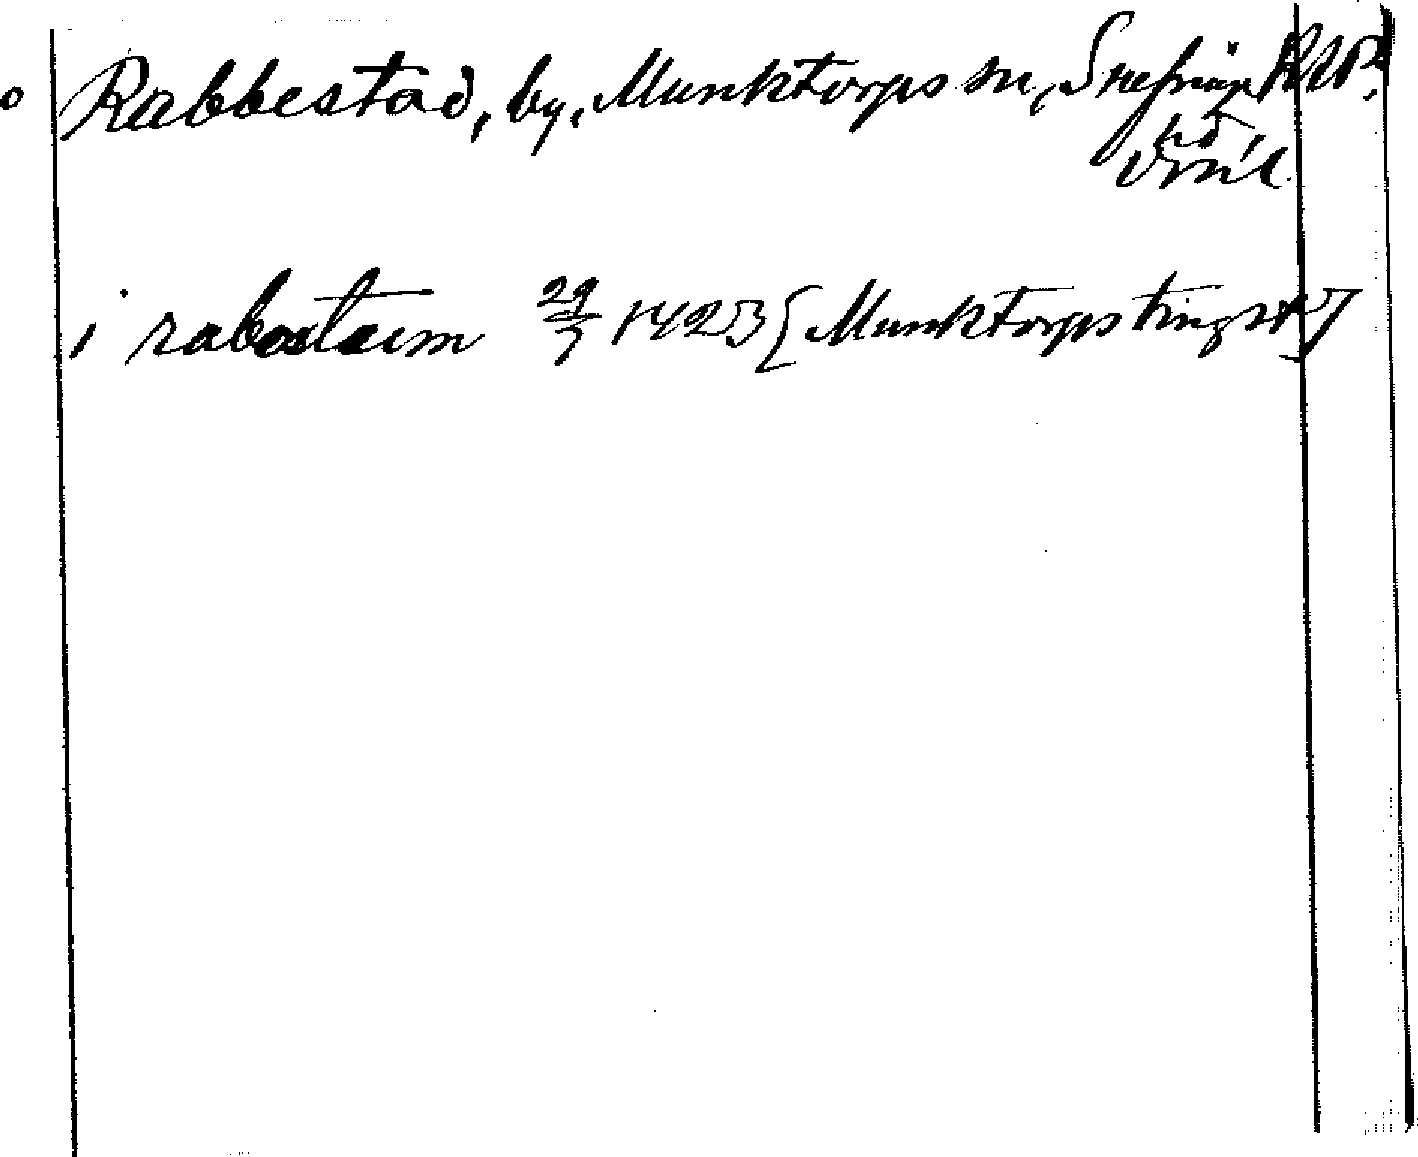 Rabbestad, by, Munktorps sn, Snefringe
hd,
Vsml.
i rabostum 29/7 1423 [Munktorps tingst]